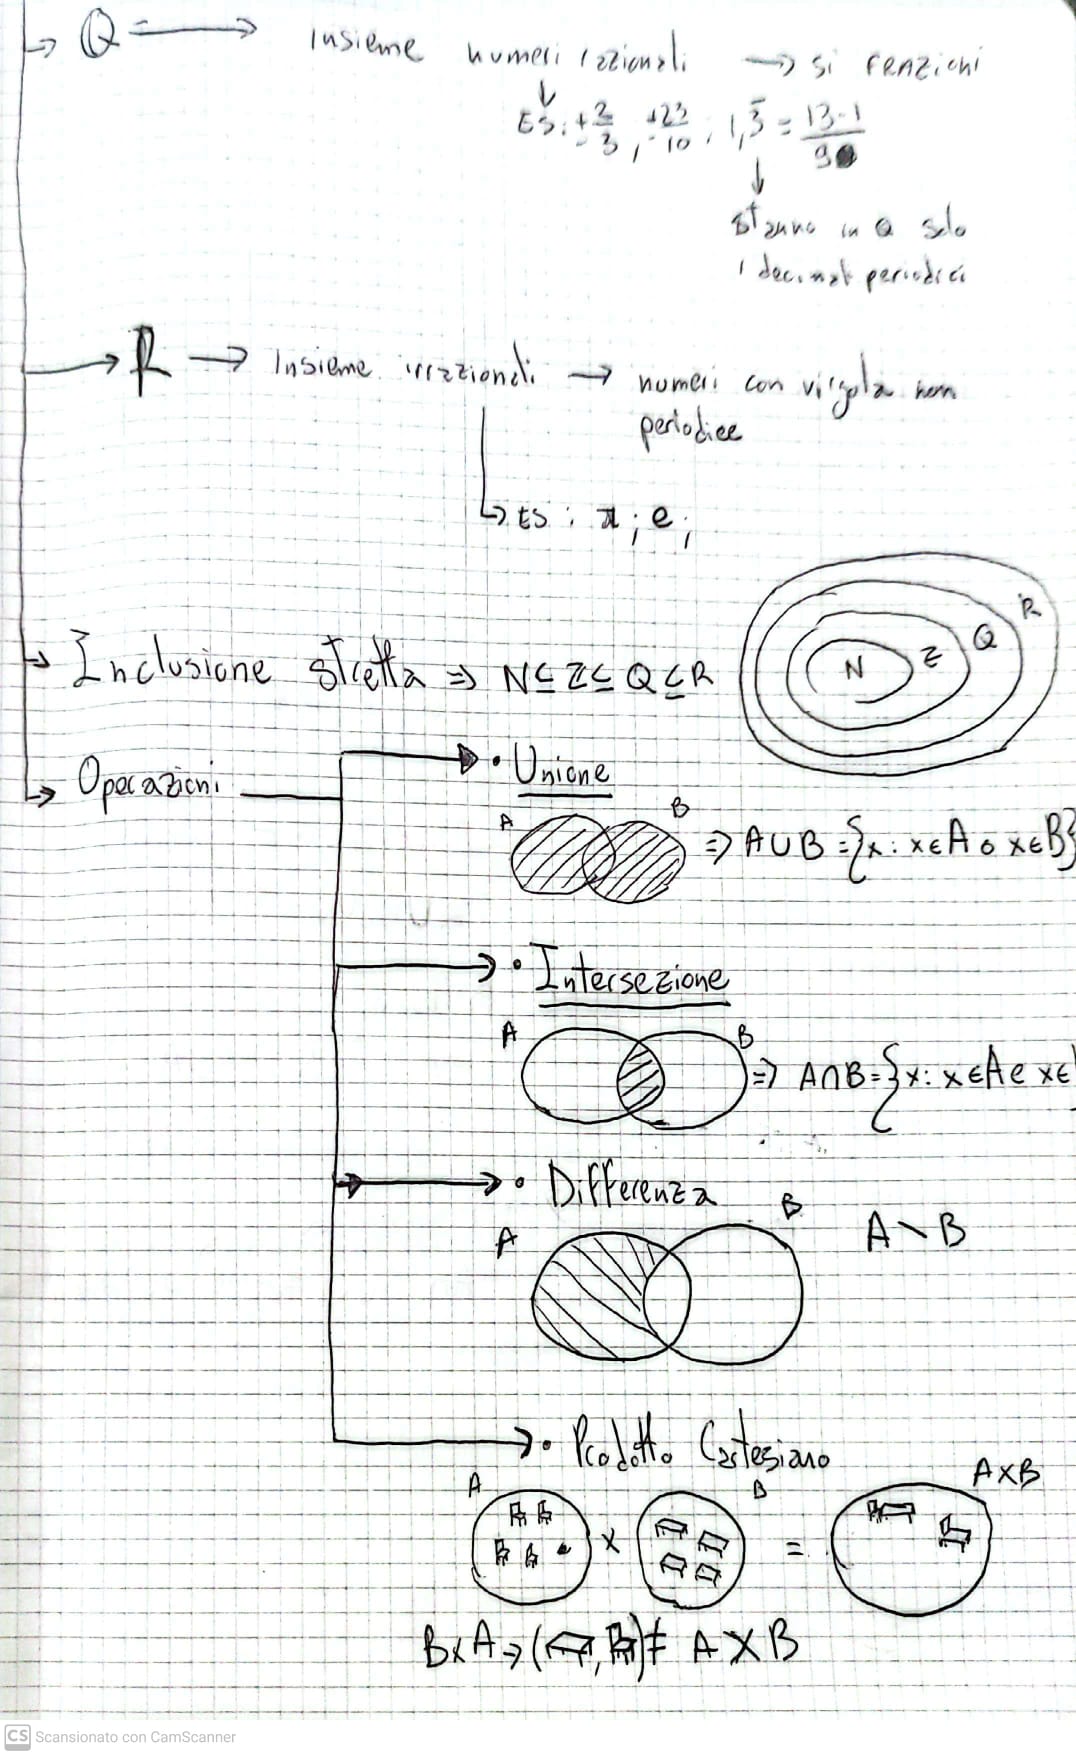 Q = → insieme numeri razionali → si FRAZIONI
ES: ± 2/3, ± 23/10, 1,3̅ = 13-1/9
stanno in Q solo
i decimali periodici
R → Insieme irrazionali → numeri con virgola non
periodice
ES: π; e;
Inclusione stretta ⇒ N⊆Z⊆Q⊆R
N Z Q R
Operazioni
• Unione
A B ⇒ A∪B = {x: x∈A o x∈B}
• Intersezione
A B ⇒ A∩B = {x: x∈A e x∈
• Differenza
A B A \ B
• Prodotto Cartesiano
A × B = A×B
B×A → ( , ) ≠ A×B
CS Scansionato con CamScanner